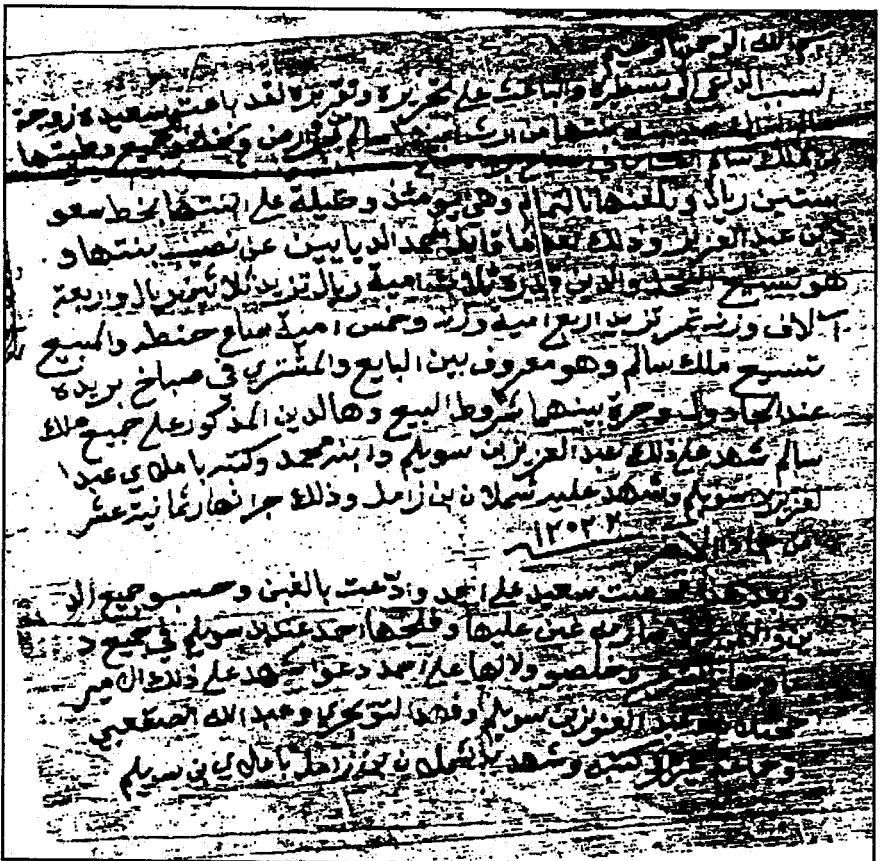 بسم الله الرحمن الرحيم
السبب الداعي الى تسطيره والباعث على تحريره وتقريره لقد باعت سعيده زوجة
سالم بنتها من ارث سالم من ارض ونخل جميع وطيتها
من ملك سالم
بستين ريال وبلغنها بالتمام وهي يومئذ وكيلة على ابنتها بخط سعو
د بن عبد العزيز وذلك بعدما فك محمد الديابين عن نصيب بنتها و
هو تسيع النخل والدين وقدره ثلاثماية ريال تزيد ثلاثين ريال واربعة
آلاف وزنة تمر تزيد اربع امية وزنه وخمس امية صاع حنطه والمبيع
تسيع ملك سالم وهو معروف بين البايع والمشتري في صباخ بريده
عند الجادول وجرة بينهما شروط البيع وهالدين المذكور على جميع ملك
سالم شهد على ذلك عبد العزيز بن سويلم وابنه محمد وكتبه باملاي عبدا
لعزيز بن سويلم وشهد عليه شملان بن زامل وذلك جرا نهار ثمانية عشر
من جماد
وبعد هذا سعيد على احمد وادعت بالغبن وحسبو جميع الد
ين غبن عليها وفلجها احمد عند بن سويلم في جميع د
وخلصو ولا لها على احمد دعوا شهد على ذلك الامير
عبد العزيز بن سويلم وفهد التويجري وعبد الله الصقعبي
وجماعة وشهد به شملان بن زامل باملاي بن سويلم